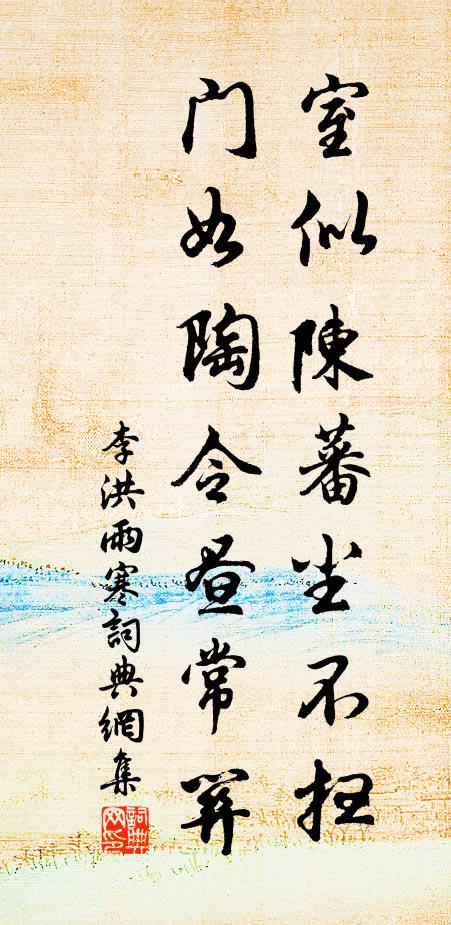 室似陳蕃尘不扫
门如陶令昼常关
李洪雨寒詞典網集
詞典网印